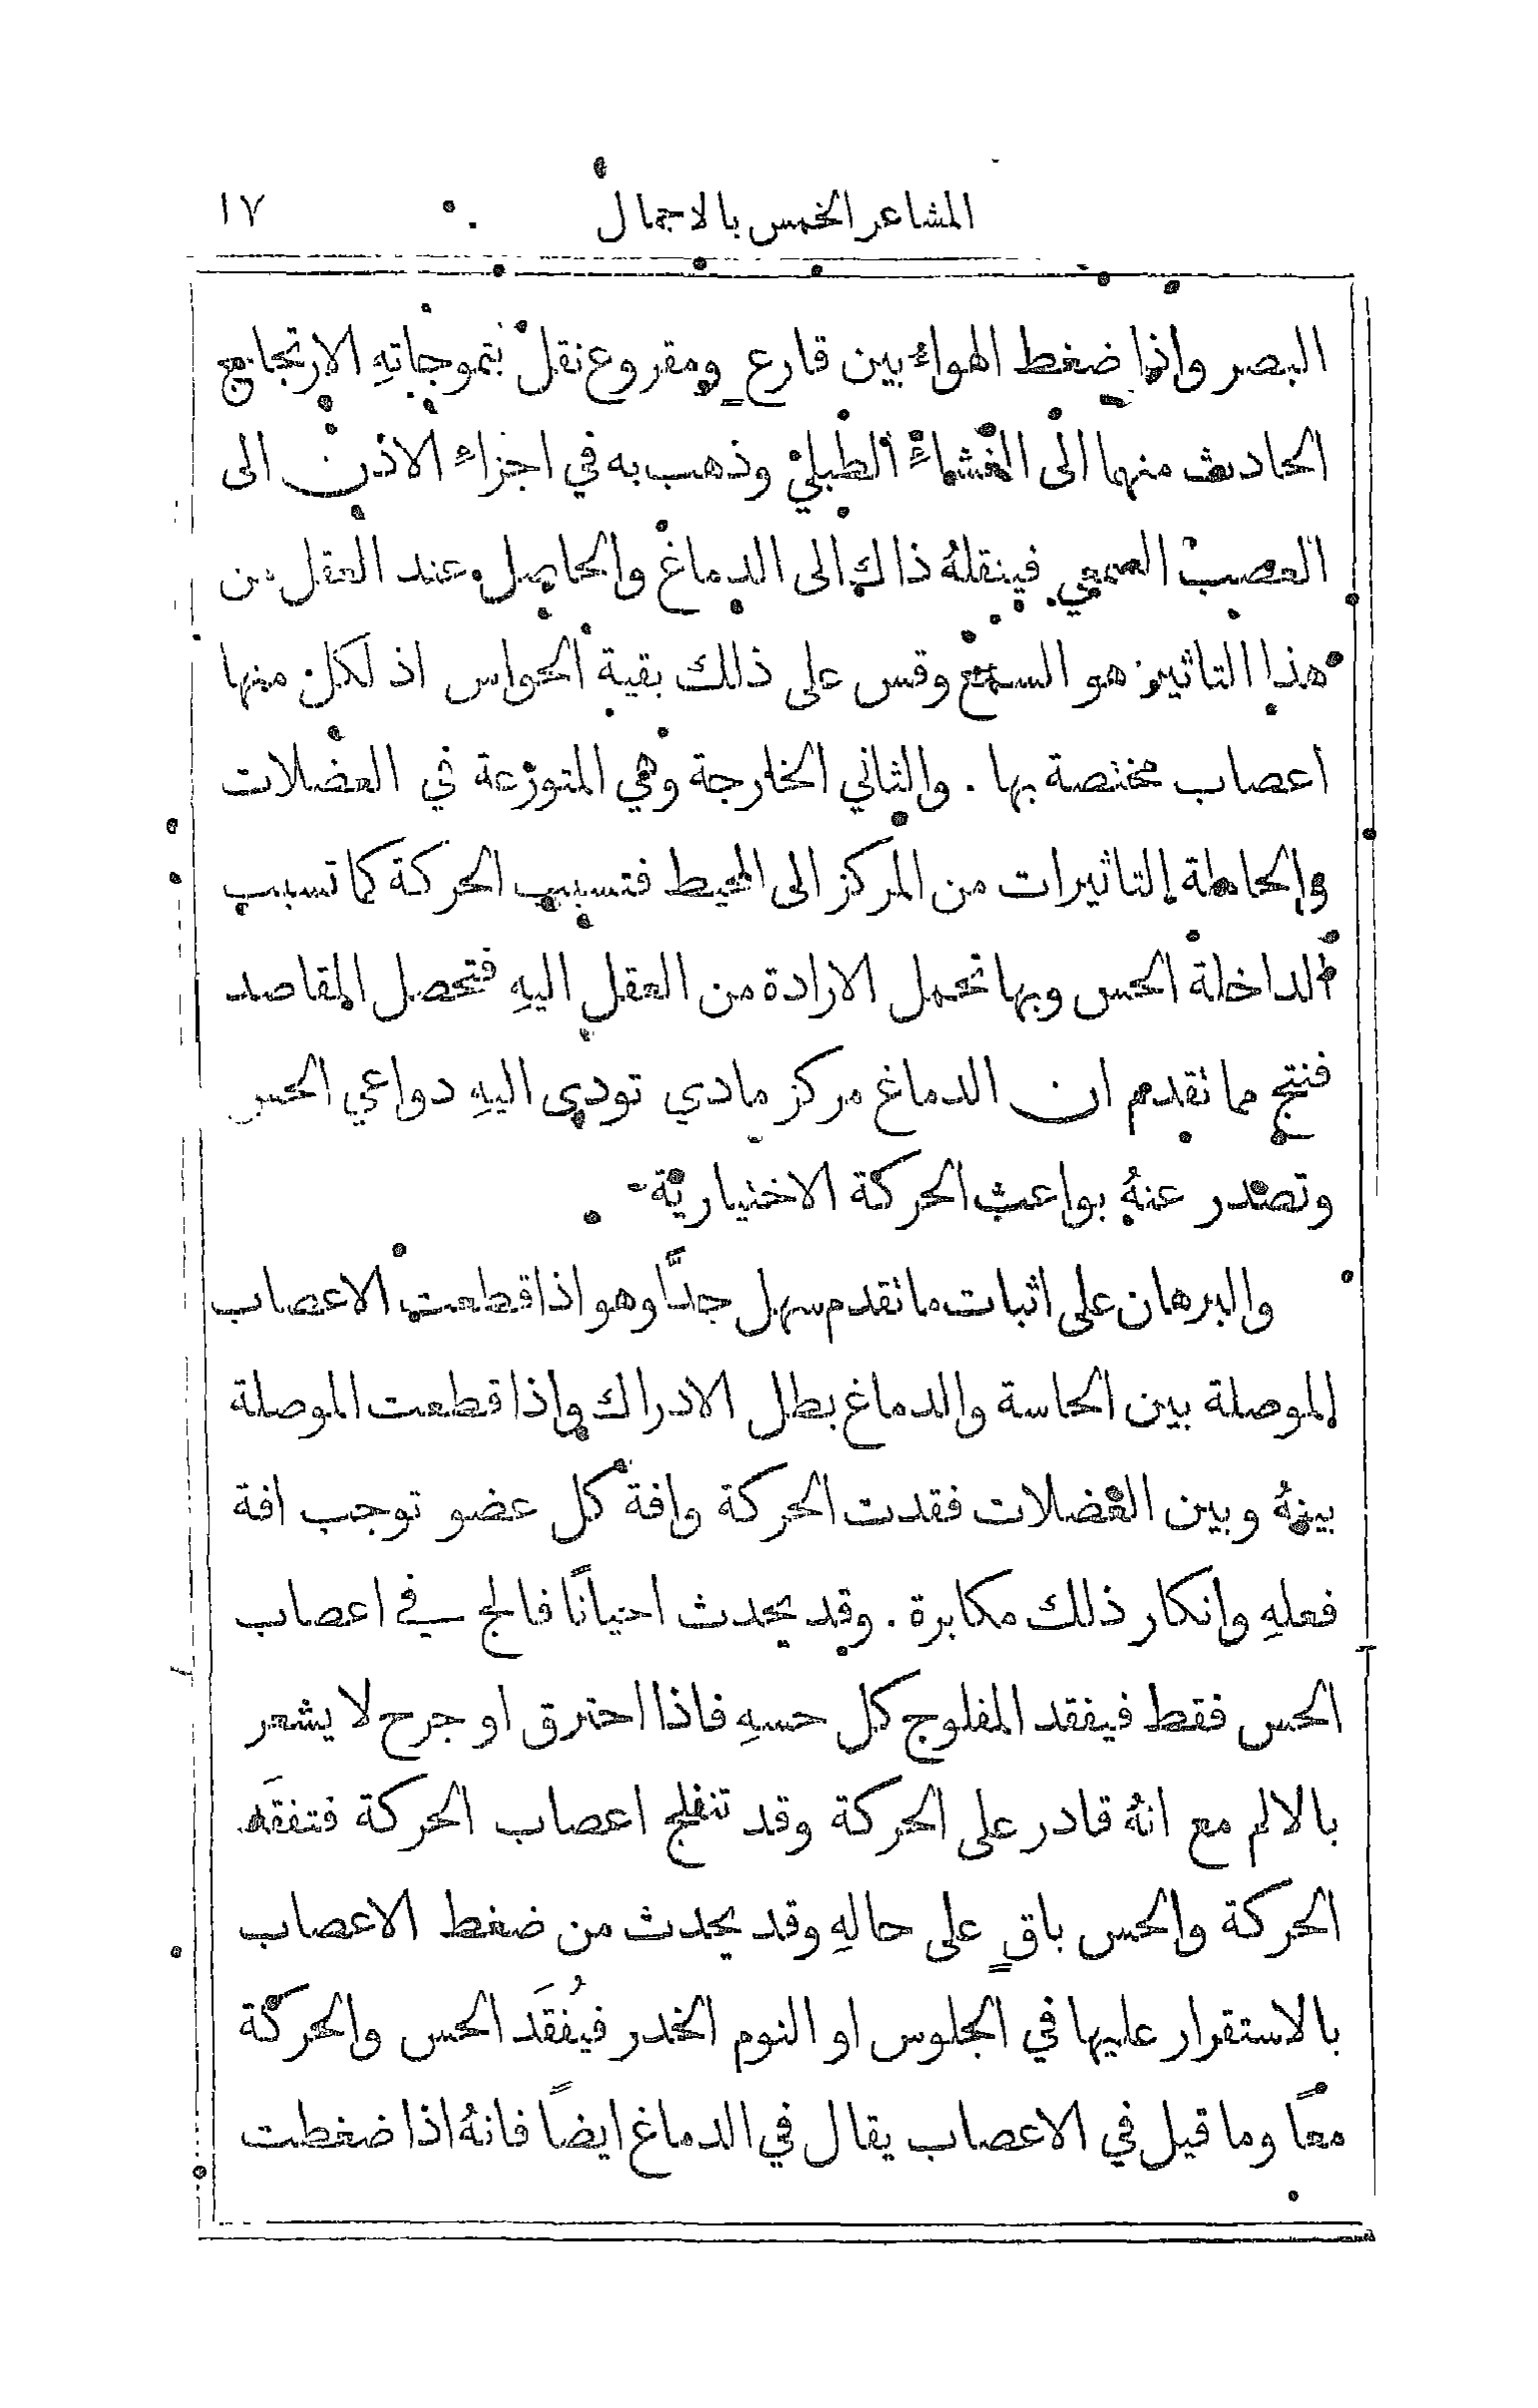 المشاعر الخمس بالاجمال ١٧
البصر واذا ضغط الهواء بين قارع ومقروع نقل بتموجاتهِ الارتجاج
الحادث منهما الى الغشاء الطبلي وذهب به في اجزاء الاذن الى
العصب السمعي فينقلهُ ذاك الى الدماغ والحاصل عند العقل من
هذا التاثير هو السمع وقس على ذلك بقية الحواس اذ لكل منها
اعصاب مختصة بها . والثاني الخارجة وهي المتوزعة في العضلات
والحاملة التاثيرات من المركز الى المحيط فتسبب الحركة كما تسبب
الداخلة الحس وبها تحمل الارادة من العقل اليهِ فتحصل المقاصد
فنتج مما تقدم ان الدماغ مركز مادي تودى اليهِ دواعي الحس
وتصدر عنهُ بواعث الحركة الاختيارية
والبرهان على اثبات ما تقدم سهل جدًّا وهو اذا قطعت الاعصاب
الموصلة بين الحاسة والدماغ بطل الادراك واذا قطعت الموصلة
بينهُ وبين العضلات فقدت الحركة وافة كل عضو توجب افة
فعلهِ وانكار ذلك مكابرة . وقد يحدث احيانًا فالج في اعصاب
الحس فقط فيفقد المفلوج كل حسهِ فاذا احترق او جرح لا يشعر
بالالم مع انهُ قادر على الحركة وقد تنفلج اعصاب الحركة فتفقَد
الحركة والحس باقٍ على حالهِ وقد يحدث من ضغط الاعصاب
بالاستقرار عليها في الجلوس او النوم الخدر فيُفقَد الحس والحركة
معًا وما قيل في الاعصاب يقال في الدماغ ايضًا فانهُ اذا ضغطت